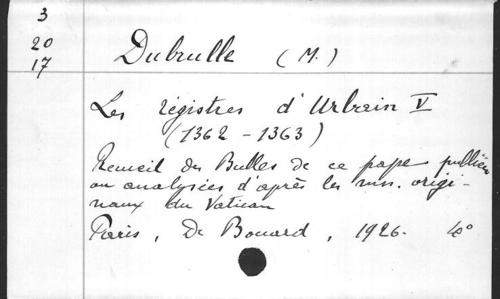 3
20
17
Dubrulle (M.)
Les régistres d'Urbain V
(1362-1363)
Recueil des Bulles de ce pape publiées
ou analysées d'après les mn. origi-
naux du Vatican
Paris, De Boccard, 1926. 4°